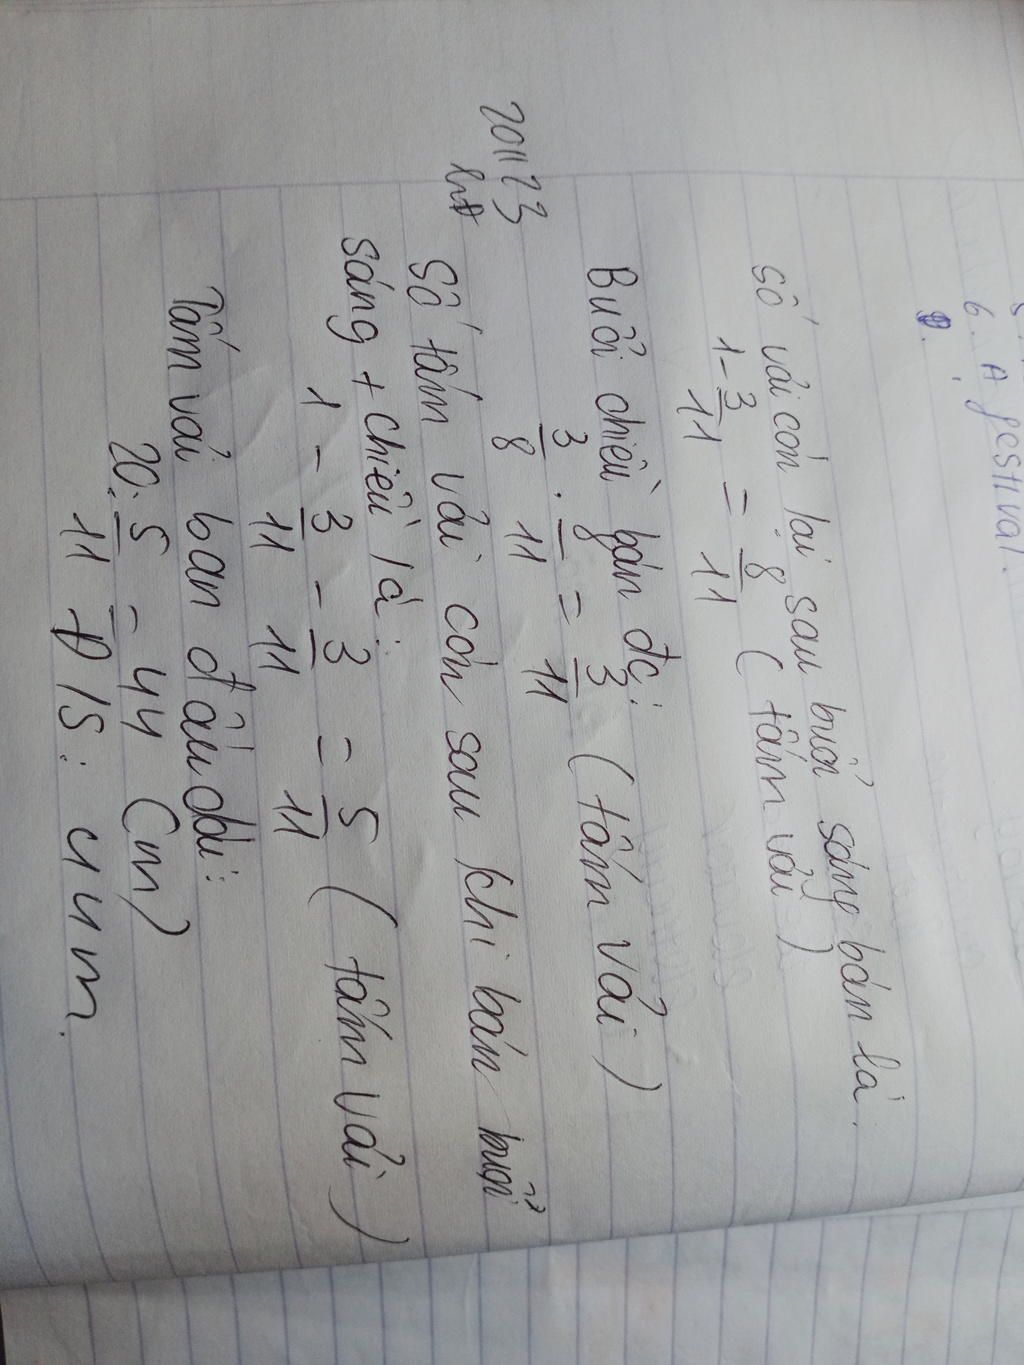 6. A festival.
số vải còn lại sau buổi sáng bán là
1 - 3/11 = 8/11 (tấm vải)
Buổi chiều bán đc:
3/8 . 8/11 = 3/11 (tấm vải)
Số tấm vải còn sau khi bán buổi
sáng + chiều là:
1 - 3/11 - 3/11 = 5/11 (tấm vải)
Tấm vải ban đầu dài:
20 : 5/11 = 44 (m)
Đ/S: 44m.